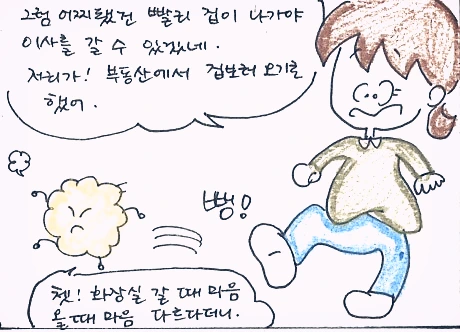 그럼 어찌됐건 빨리 집이 나가야
이사를 갈 수 있겠네.
저리가! 부동산에서 집보러 오기로
했어.
뻥!
쳇! 화장실 갈 때 마음
올 때 마음 다르다더니.